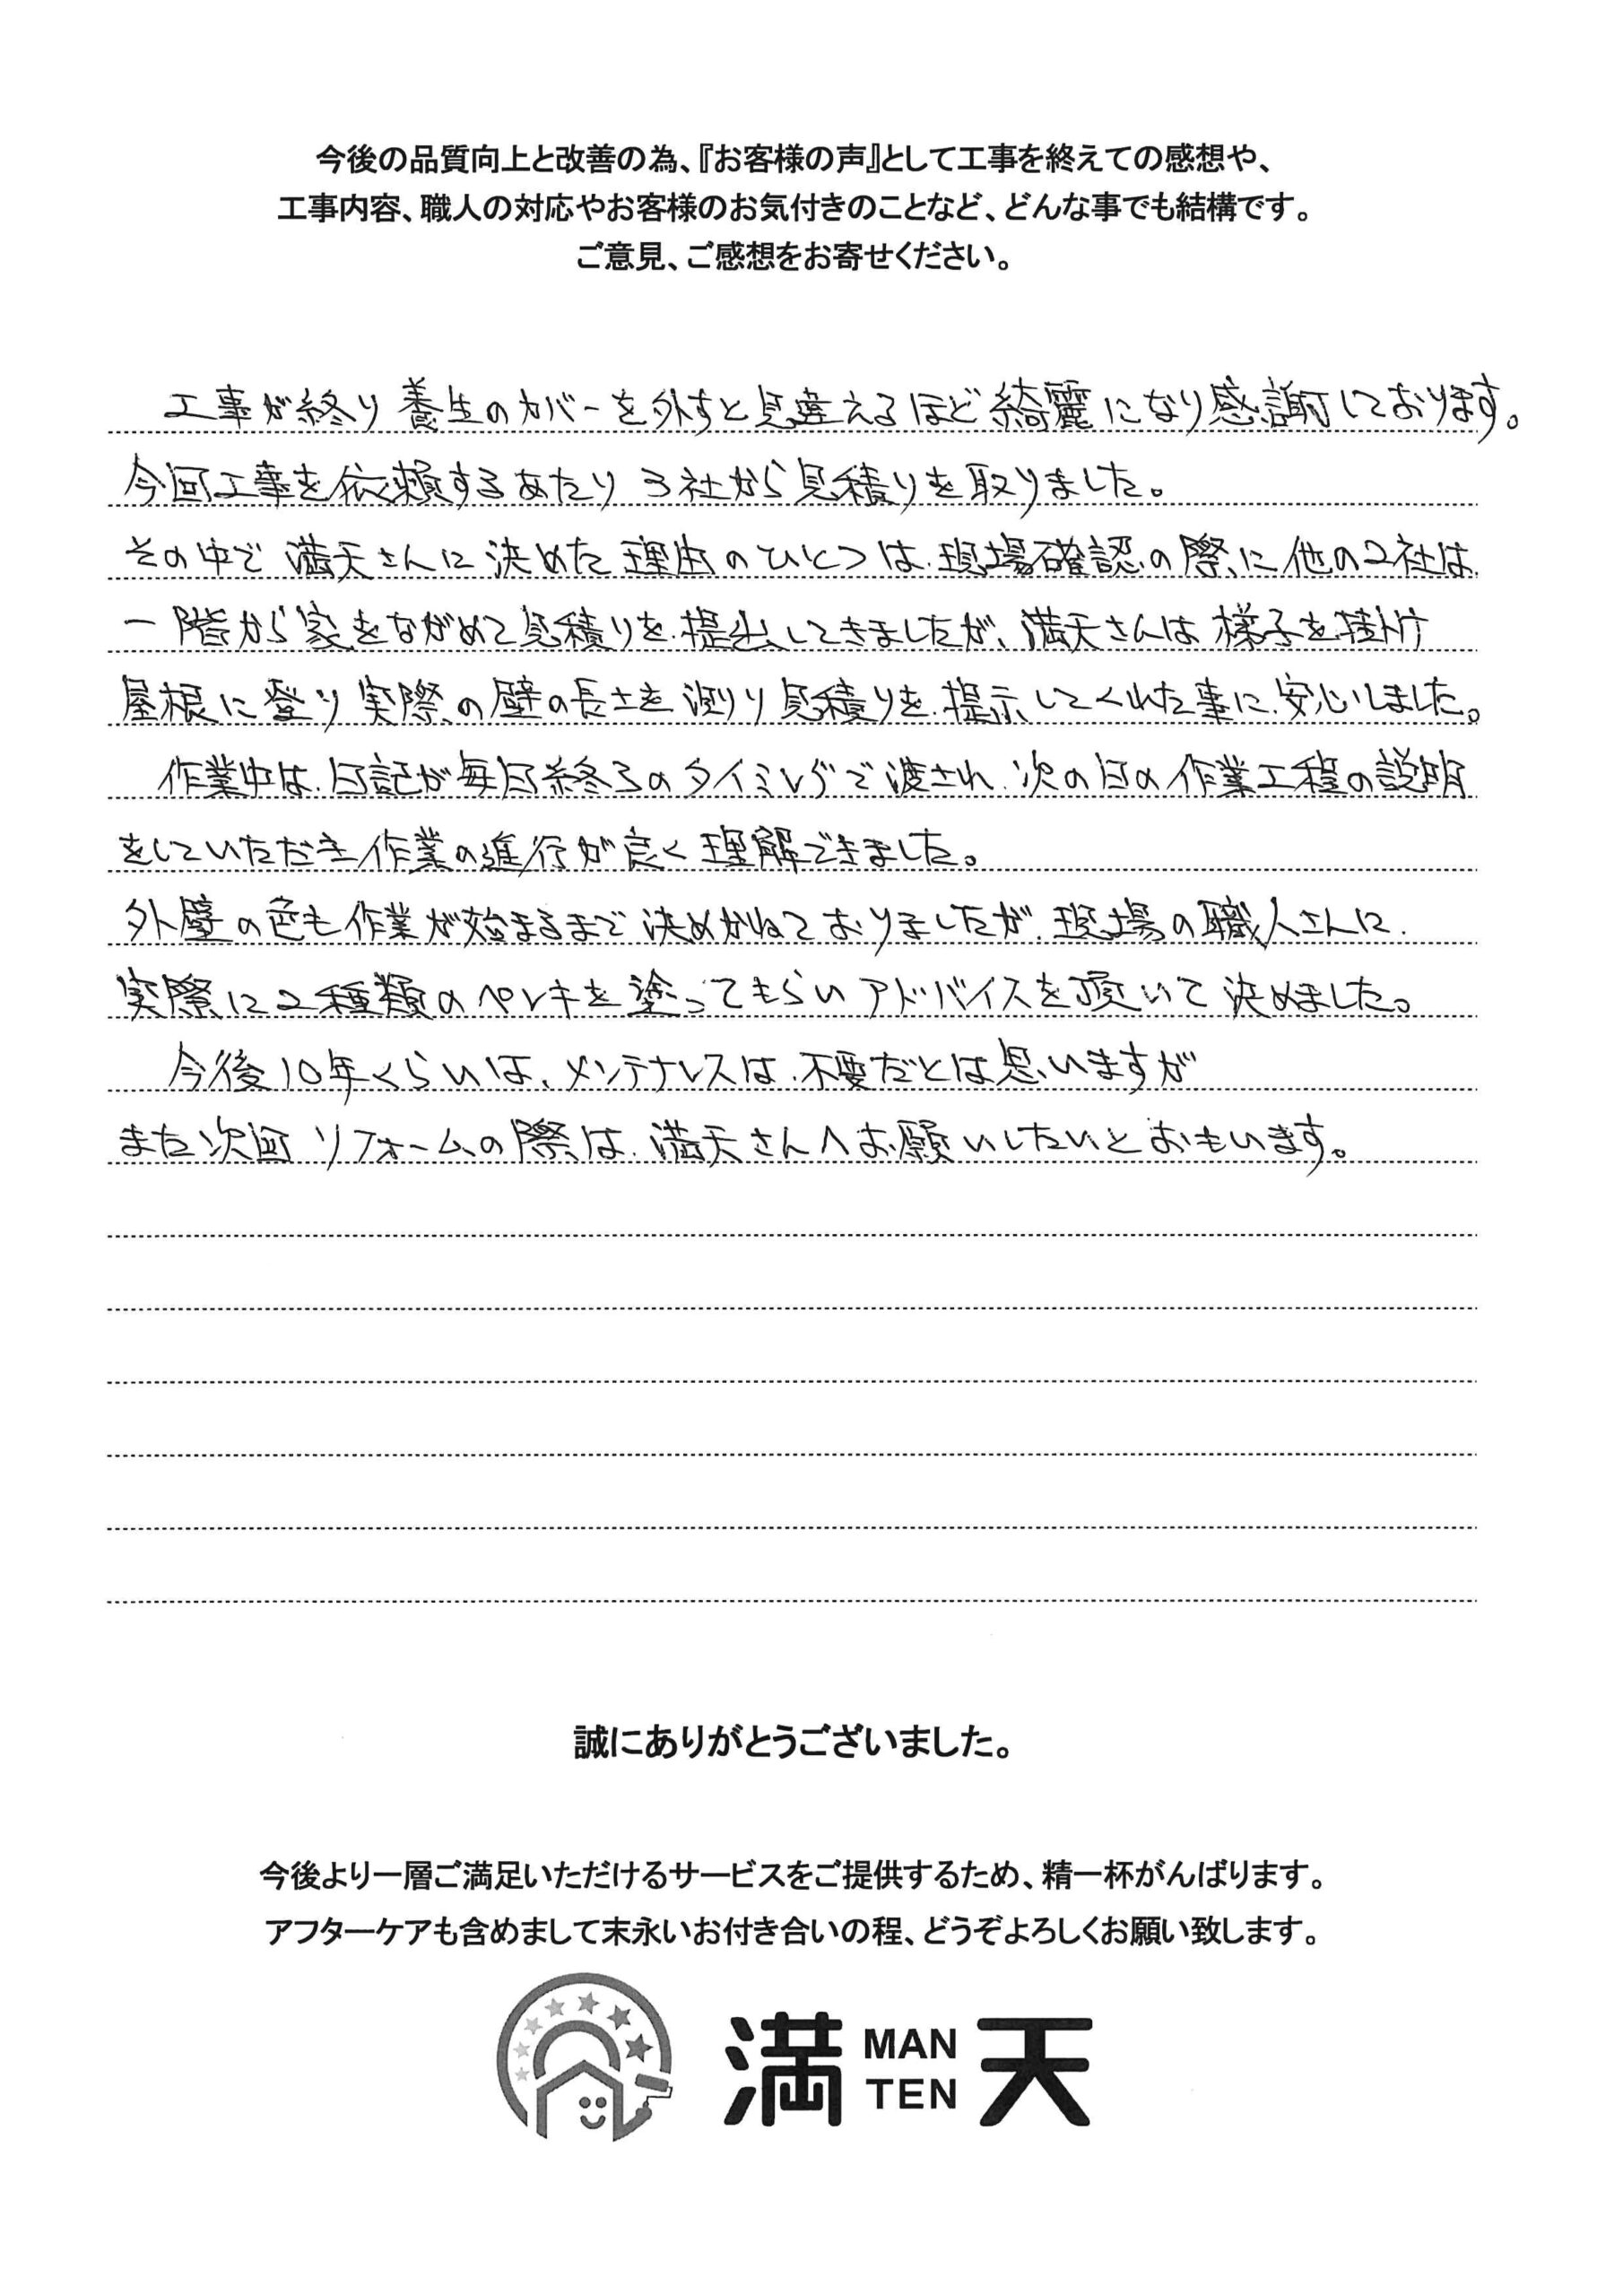 今後の品質向上と改善の為、『お客様の声』として工事を終えての感想や、
工事内容、職人の対応やお客様のお気付きのことなど、どんな事でも結構です。
ご意見、ご感想をお寄せください。
工事が終り養生のカバーを外すと見違えるほど綺麗になり感謝しております。
今回工事を依頼するあたり3社から見積りを取りました。
その中で満天さんに決めた理由のひとつは、現場確認の際に他の2社は、
一階から家をながめて見積りを提出してきましたが、満天さんは様子を掛け
屋根に登り実際の壁の長さを測り見積りを提示してくれた事に安心しました。
作業中は、日記が毎日終るのタイミングで渡され、次の日の作業工程の説明
をしていただき作業の進行が良く理解できました。
外壁の色も作業が始まるまで決めかねておりましたが、現場の職人さんに、
実際に2種類のペンキを塗ってもらいアドバイスを頂いて決めました。
今後10年くらいは、メンテナンスは、不要だとは思いますが
また次回リフォームの際は、満天さんへお願いしたいとおもいます。
誠にありがとうございました。
今後より一層ご満足いただけるサービスをご提供するため、精一杯がんばります。
アフターケアも含めまして末永いお付き合いの程、どうぞよろしくお願い致します。
満 MAN TEN 天